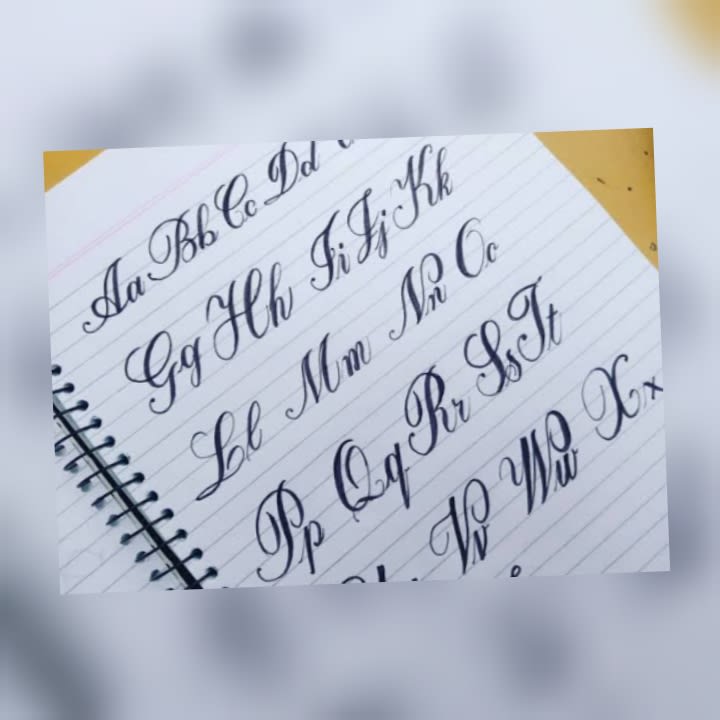 Aa Bb Cc Dd
Gg Hh Ii Jj Kk
Ll Mm Nn Oo
Pp Qq Rr Ss Tt
Vv Ww Xx